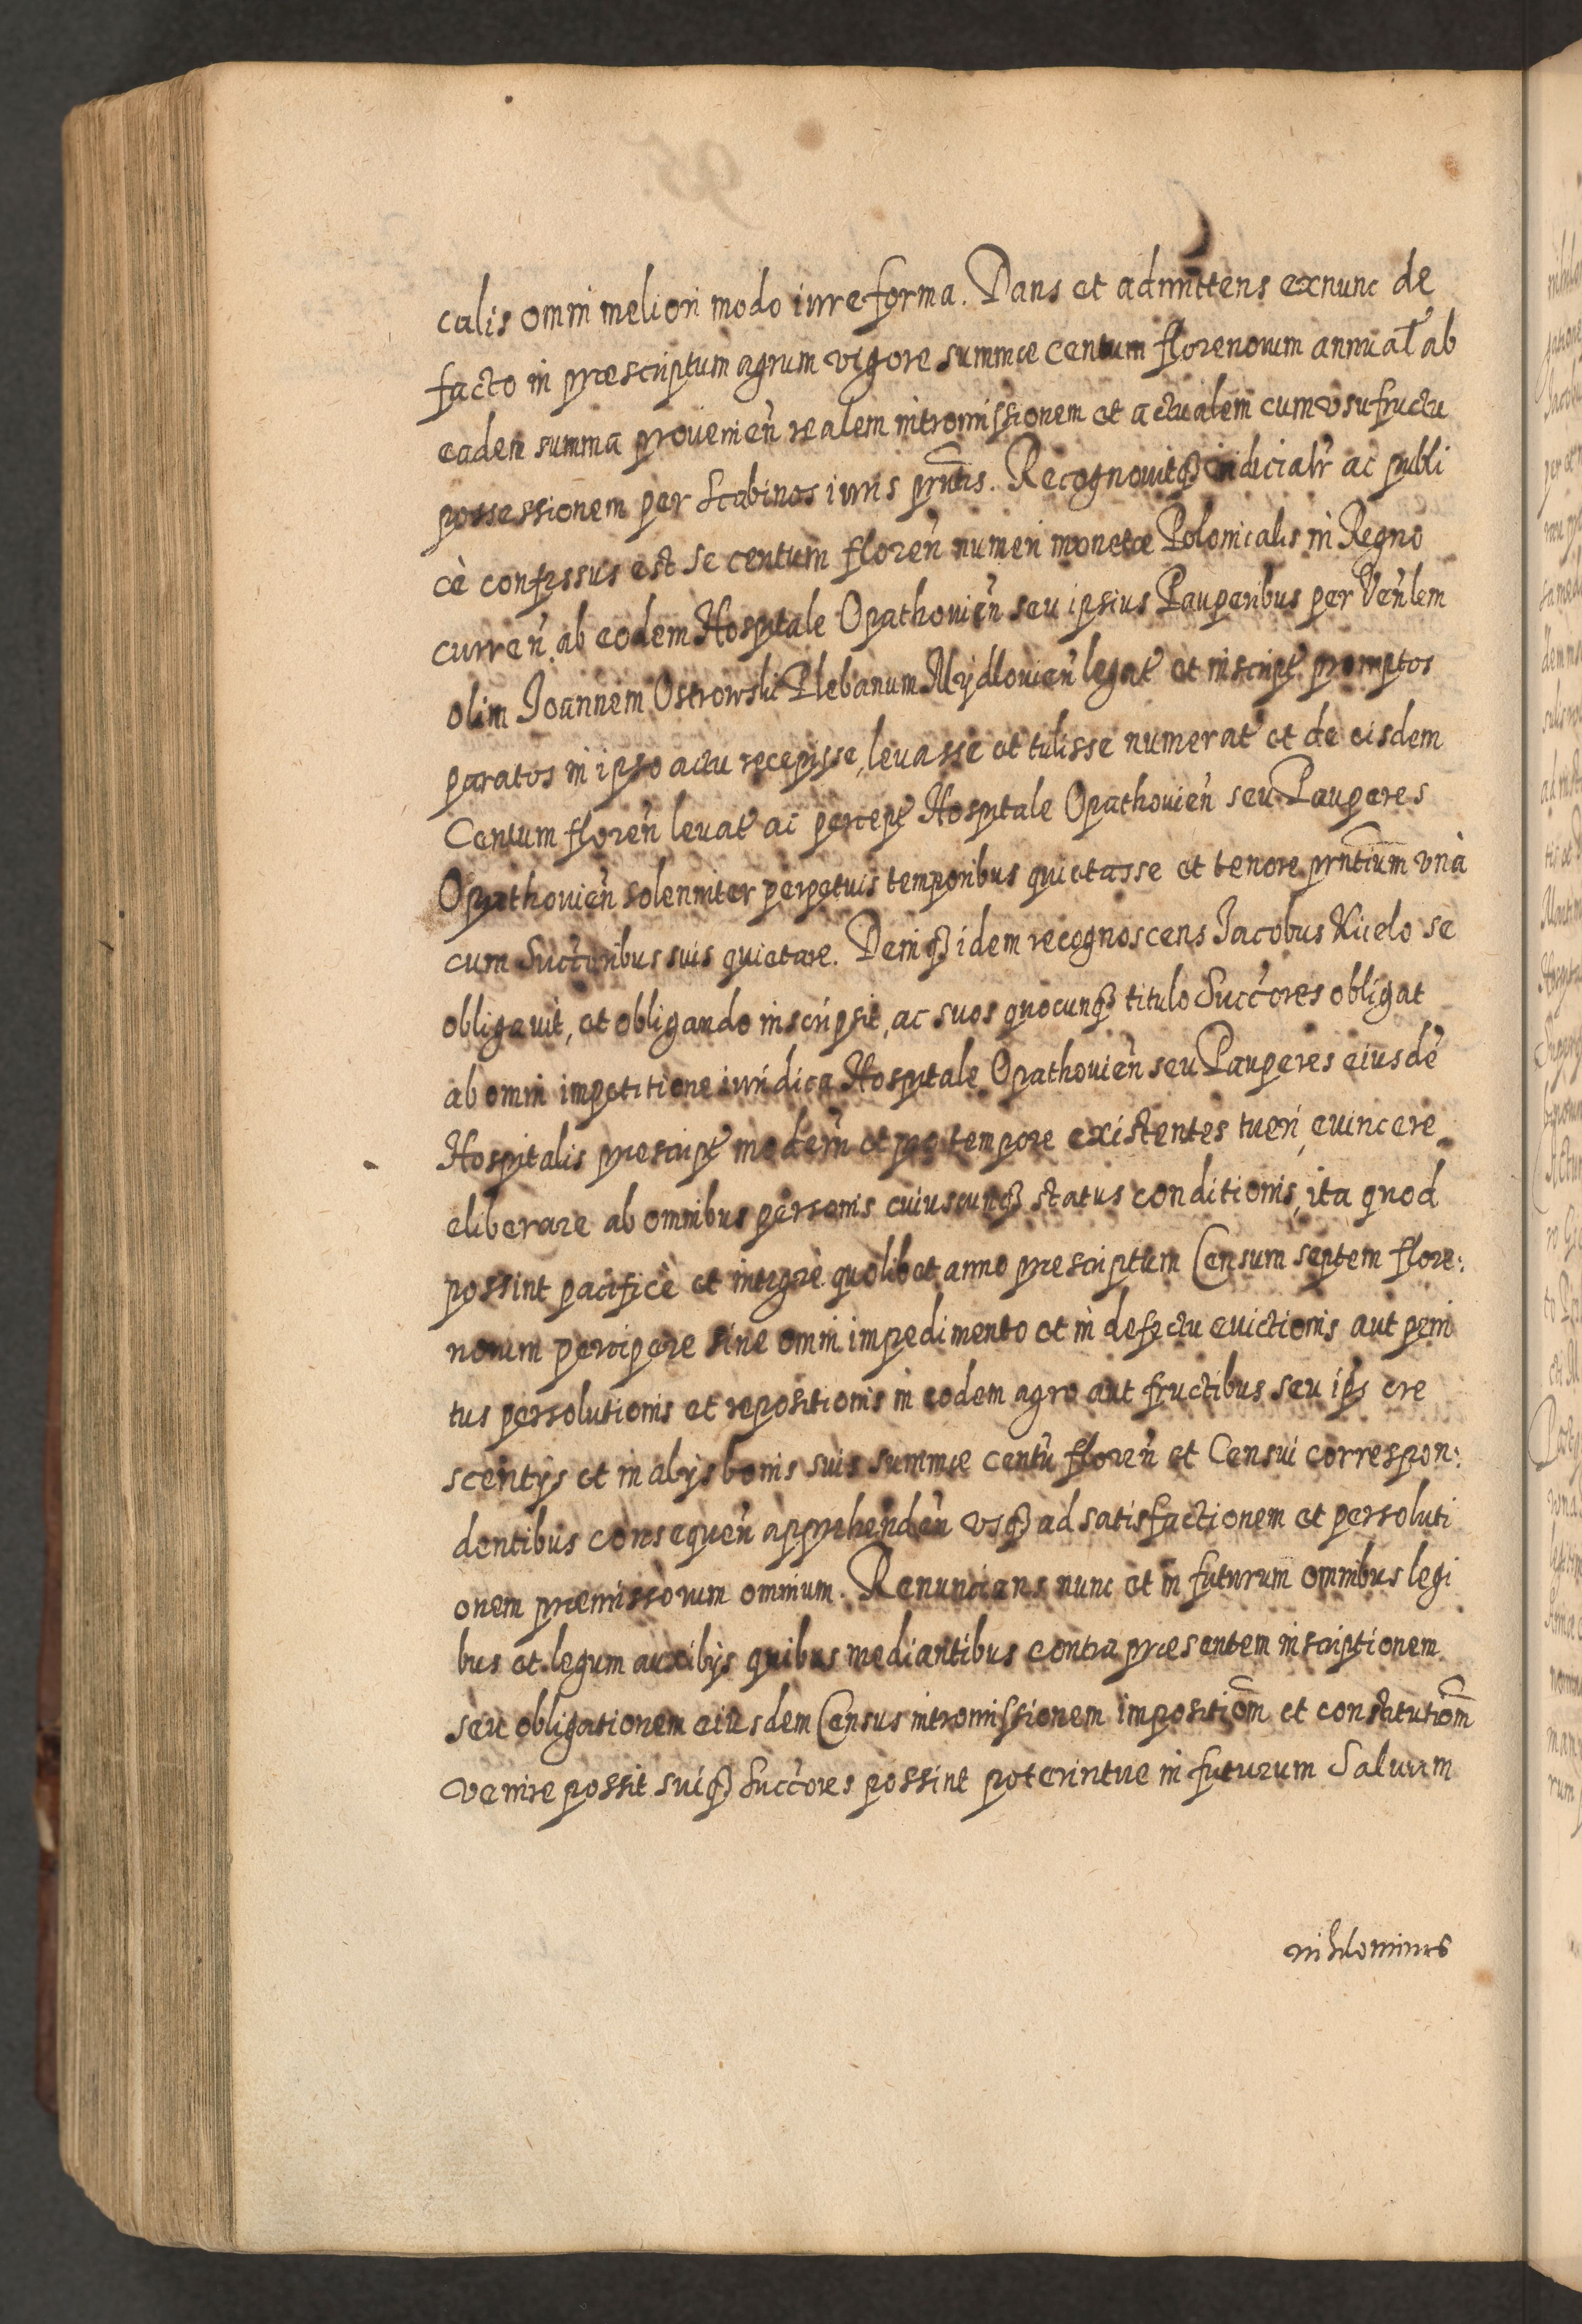 calis omni meliori modo iure forma. Dans et admittens exnunc de
facto in præscriptum agrum vigore summæ centum florenorum annuat̃ ab
eadem summa prouenień realem intromissionem et actualem cum vsufructu
possessionem per Scabinos iuris pr̃ntis. Recognouitq₃ iudicialr̃ ac publi
cè confessus est se centum floreń numeri monetæ Polonicalis in Regno
curreń ab eodem Hospitale Opathouień seu ipsius Pauperibus per Veńlem
olim Joannem Ostrowski Plebanum Mydlouień legat̃ et inscript̃ promptos
paratos in ipso actu recepisse, leuasse et tulisse numerat̃ et de eisdem
Centum floreń leuat̃ ac percept̃ Hospitale Opathouień seu Pauperes
Opathouień solenniter perpetuis temporibus quietasse et tenore pr̃ntium vnà
cum Succ̃oribus suis quietare. Deniq₃ idem recognoscens Jacobus Kuelo se
obligauit, et obligando inscripsit, ac suos quocunq₃ titulo Succ̃ores obligat
ab omni impetitione iuridica Hospitale Opathouień seu Pauperes eiusdẽ
Hospitalis præscript̃ moderń et pro tempore existentes tueri, euincere
eliberare ab omnibus personis cuiuscunq₃ status conditionis, ita quod
possint pacificè et integrè quolibet anno præscriptum Censum septem flore:
norum percipere sine omni impedimento et in defectu euictionis aut peni
tus persolutionis et repositionis in eodem agro aut fructibus seu ip̃s cre
scentijs et in alijs bonis suis summæ centũ floreń et Censui correspon:
dentibus consequeń apprehendeń vsq₃ ad satisfactionem et persoluti
onem præmissorum omnium. Renuncians nunc et in futurum omnibus legi
bus et legum auxilijs quibus mediantibus contra præsentem inscriptionem
seu obligationem eiusdem Census intromissionem impositiom̃ et constitutiom̃
venire possit suiq₃ Succ̃ores possint poterintue in futurum Saluum
nihilominus